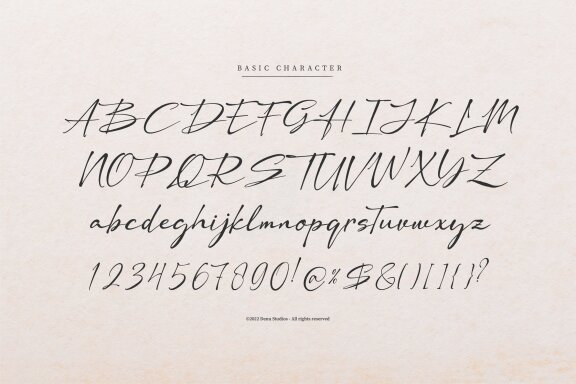 BASIC CHARACTER
ABCDEFGHIJKLM
NOPQRSTUVWXYZ
abcdefghijklmnopqrstuvwxyz
1234567890!@%$&()[]{}?
©2022 Denu Studios - All rights reserved